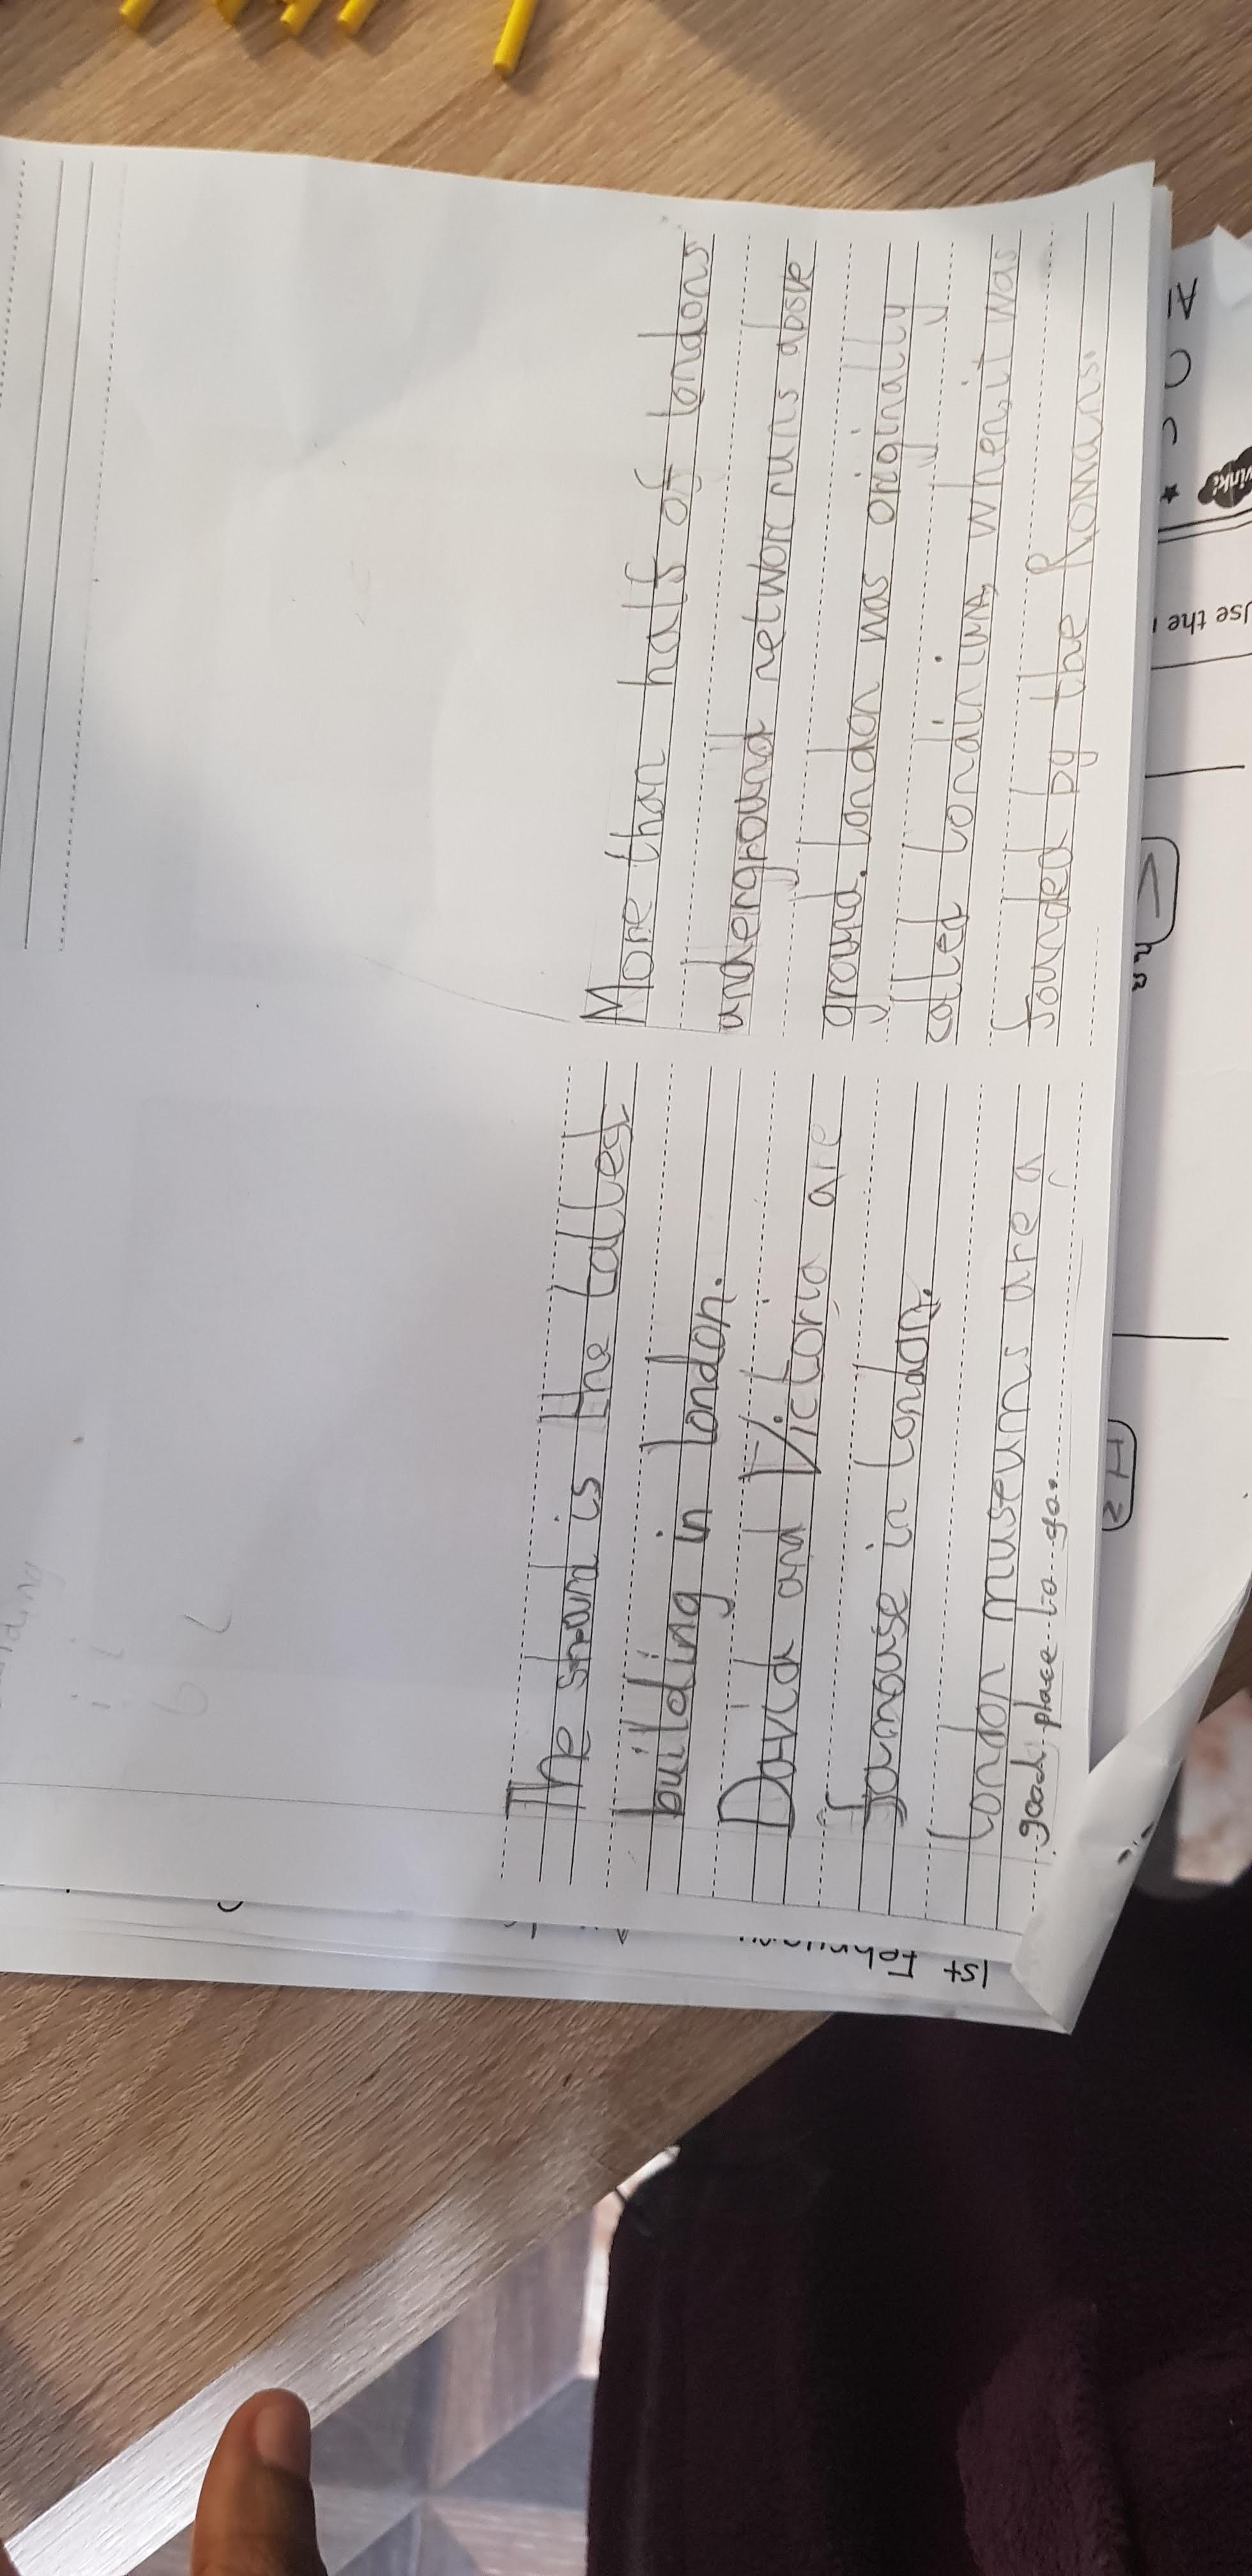 The shard is the tallest
building in london.
David and Victoria are
famouse in london.
london museums are a
good place to go.
More than half of londons
underground networc runs above
ground. london was originally
called londinium, when it was
founded by the Romans.
1st February
Use the